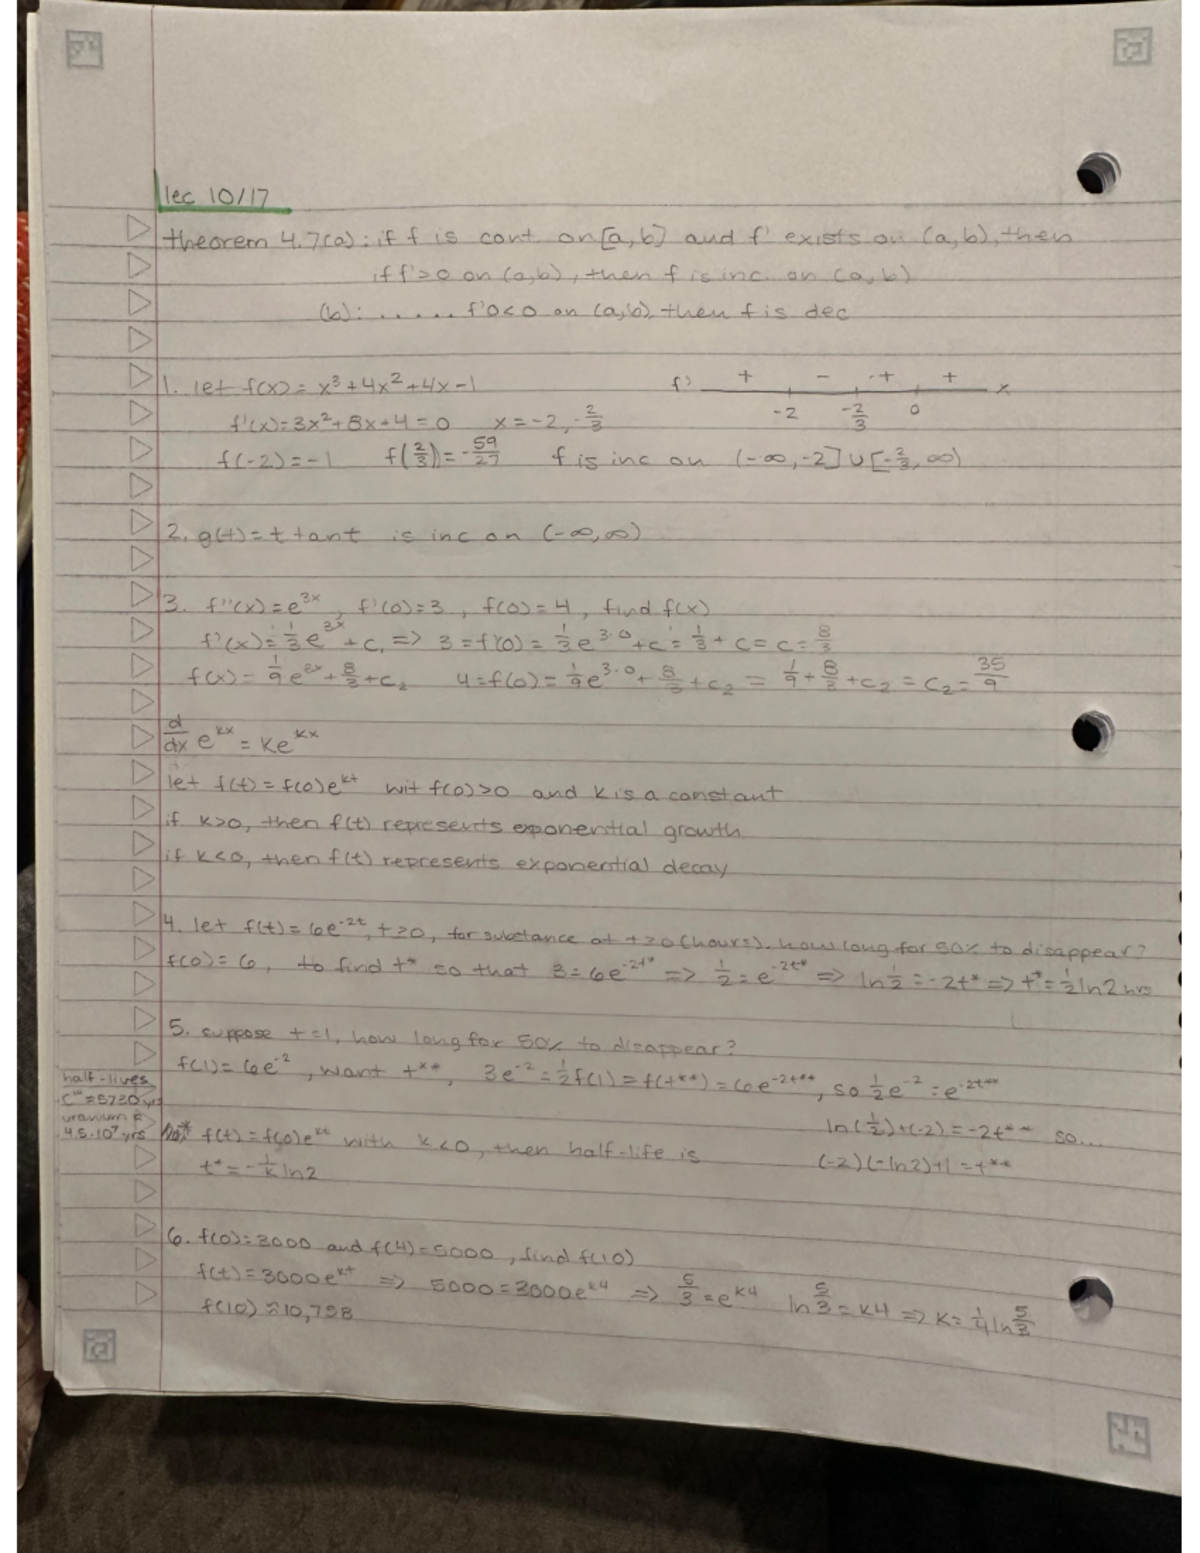 lec 10/17
theorem 4.7(a): if f is cont. on [a,b] and f' exists on (a,b), then
if f'>0 on (a,b), then f is inc. on (a,b)
(b): ..... f'0<0 on (a,b), then f is dec
1. let f(x) = x³+4x²+4x-1 f' + - + + x
-2 -2/3 0
f'(x)=3x²+8x+4=0 x=-2, -2/3
f(-2)=-1 f(2/3)=-59/27 f is inc on (-∞,-2]∪[-2/3,∞)
2. g(t)=t tant is inc on (-∞,∞)
3. f''(x)=e^3x, f'(0)=3, f(0)=4, find f(x)
f'(x)=1/3 e^3x + c, => 3=f'(0)=1/3 e^3·0 +c = 1/3 + c = c = 8/3
f(x)=1/9 e^3x + 8/3 + c₂ 4=f(0)=1/9 e^3·0 + 8/3 + c₂ = 1/9 + 8/3 + c₂ = c₂ = 35/9
d/dx e^kx = ke^kx
let f(t)=f(0)e^kt wit f(0)>0 and k is a constant
if k>0, then f(t) represents exponential growth
if k<0, then f(t) represents exponential decay
4. let f(t)=6e^-2t, t≥0, for substance at t≥0 (hours). how long for 50% to disappear?
f(0)=6, to find t* so that 3=6e^-2t* => 1/2=e^-2t* => ln 1/2 = -2t* => t*=1/2 ln2 hrs
5. suppose t=1, how long for 50% to disappear?
f(1)=6e^-2, want t**, 3e^-2=1/2 f(1)=f(t**)=6e^-2t**, so 1/2 e^-2=e^-2t**
ln(1/2)+(-2)=-2t** so...
(-2)(-ln2)+1=t**
half-lives
C¹⁴≈5730 yrs
uranium
4.5·10⁷ yrs
f(t)=f(0)e^kt with k<0, then half-life is
t*=-1/k ln2
6. f(0)=3000 and f(4)=5000, find f(10)
f(t)=3000e^kt => 5000=3000e^k4 => 5/3=e^k4 ln 5/3=k4 => k=1/4 ln 5/3
f(10)≈10,758